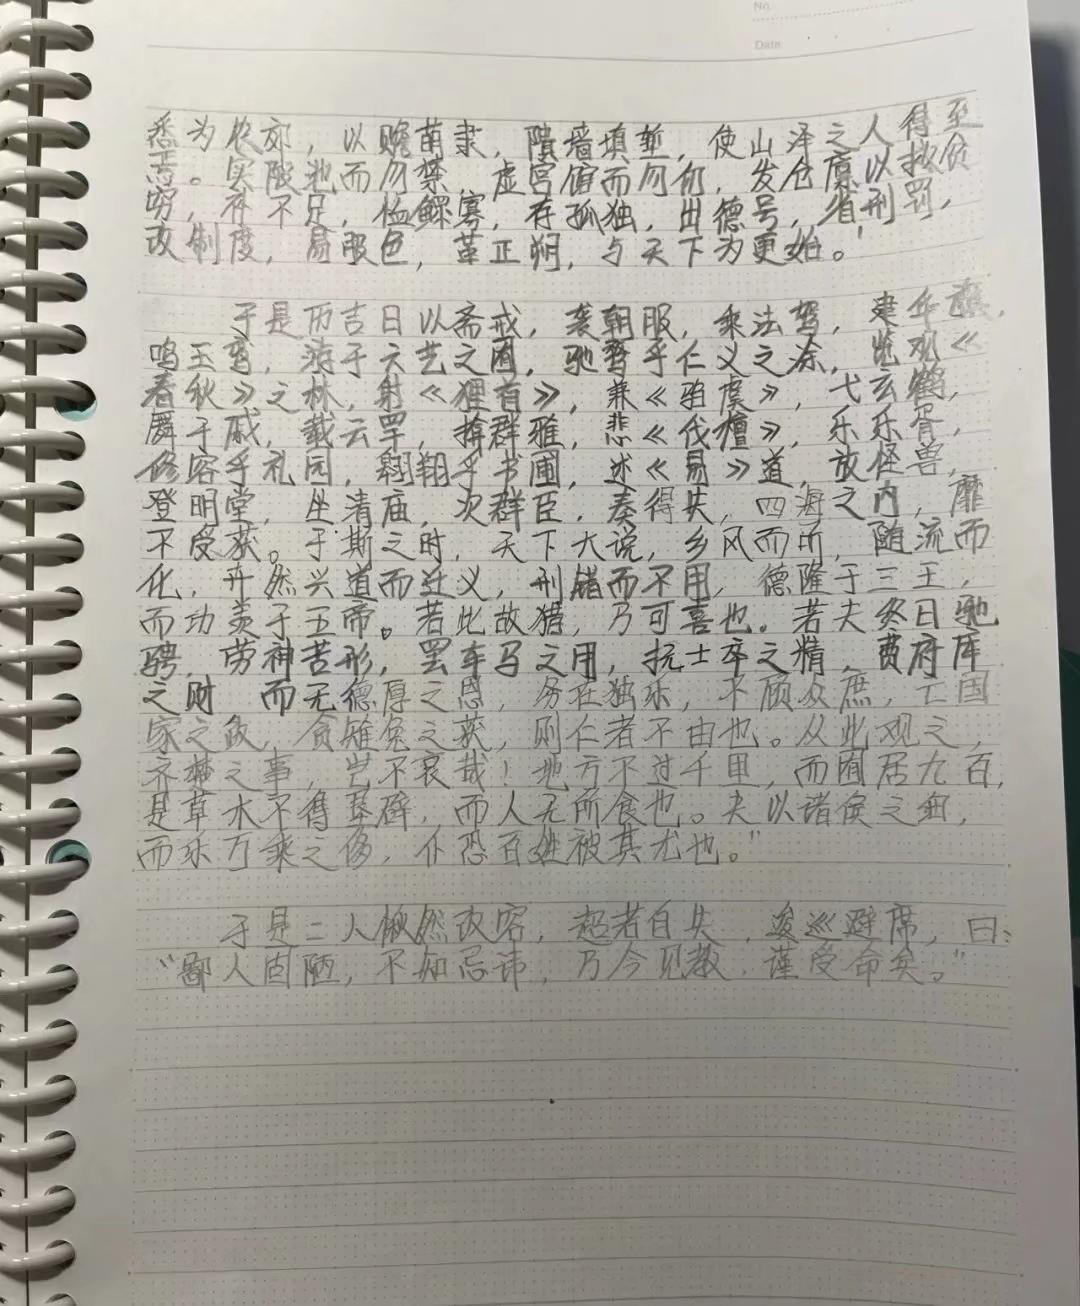 No.
Date
悉为农郊，以赡萌隶，隤墙填堑，使山泽之人得至
焉。实陂池而勿禁，虚宫馆而勿仞，发仓廪以救贫
穷，补不足，恤鳏寡，存孤独，出德号，省刑罚，
改制度，易服色，革正朔，与天下为更始。'
于是历吉日以斋戒，袭朝服，乘法驾，建华旗，
鸣玉鸾，游于六艺之囿，驰骛乎仁义之涂，览观《
春秋》之林，射《狸首》，兼《驺虞》，弋玄鹤，
舞干戚，载云罕，揜群雅，悲《伐檀》，乐乐胥，
修容乎礼园，翱翔乎书圃，述《易》道，放怪兽，
登明堂，坐清庙，次群臣，奏得失，四海之内，靡
不受获。于斯之时，天下大说，乡风而听，随流而
化，卉然兴道而迁义，刑错而不用，德隆于三王，
而功羡于五帝。若此故猎，乃可喜也。若夫终日驰
骋，劳神苦形，罢车马之用，抏士卒之精，费府库
之财 而无德厚之恩，务在独乐，不顾众庶，亡国
家之政，贪雉兔之获，则仁者不由也。从此观之，
齐楚之事，岂不哀哉！地方不过千里，而囿居九百，
是草木不得垦辟，而人无所食也。夫以诸侯之细，
而乐万乘之侈，仆恐百姓被其尤也。"
于是二人愀然改容，超若自失，逡巡避席，曰：
"鄙人固陋，不知忌讳，乃今见教，谨受命矣。"